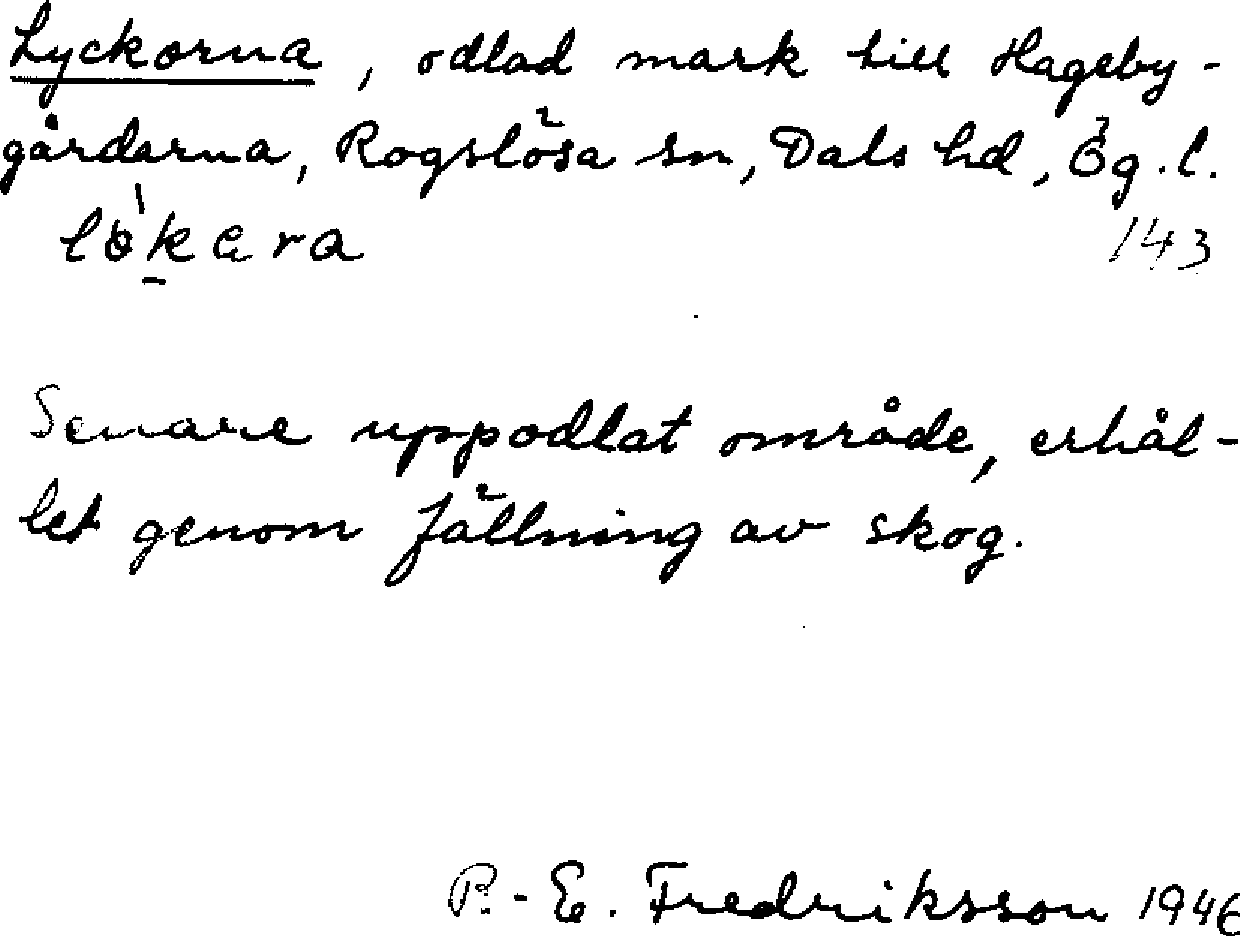 Lyckorna, odlad mark till Hageby-
gårdarna, Rogslösa sn, Dals hd, Ög.l.
143
Senare uppodlat område, erhål-
let genom fällning av skog.
P.-E. Fredriksson 1946